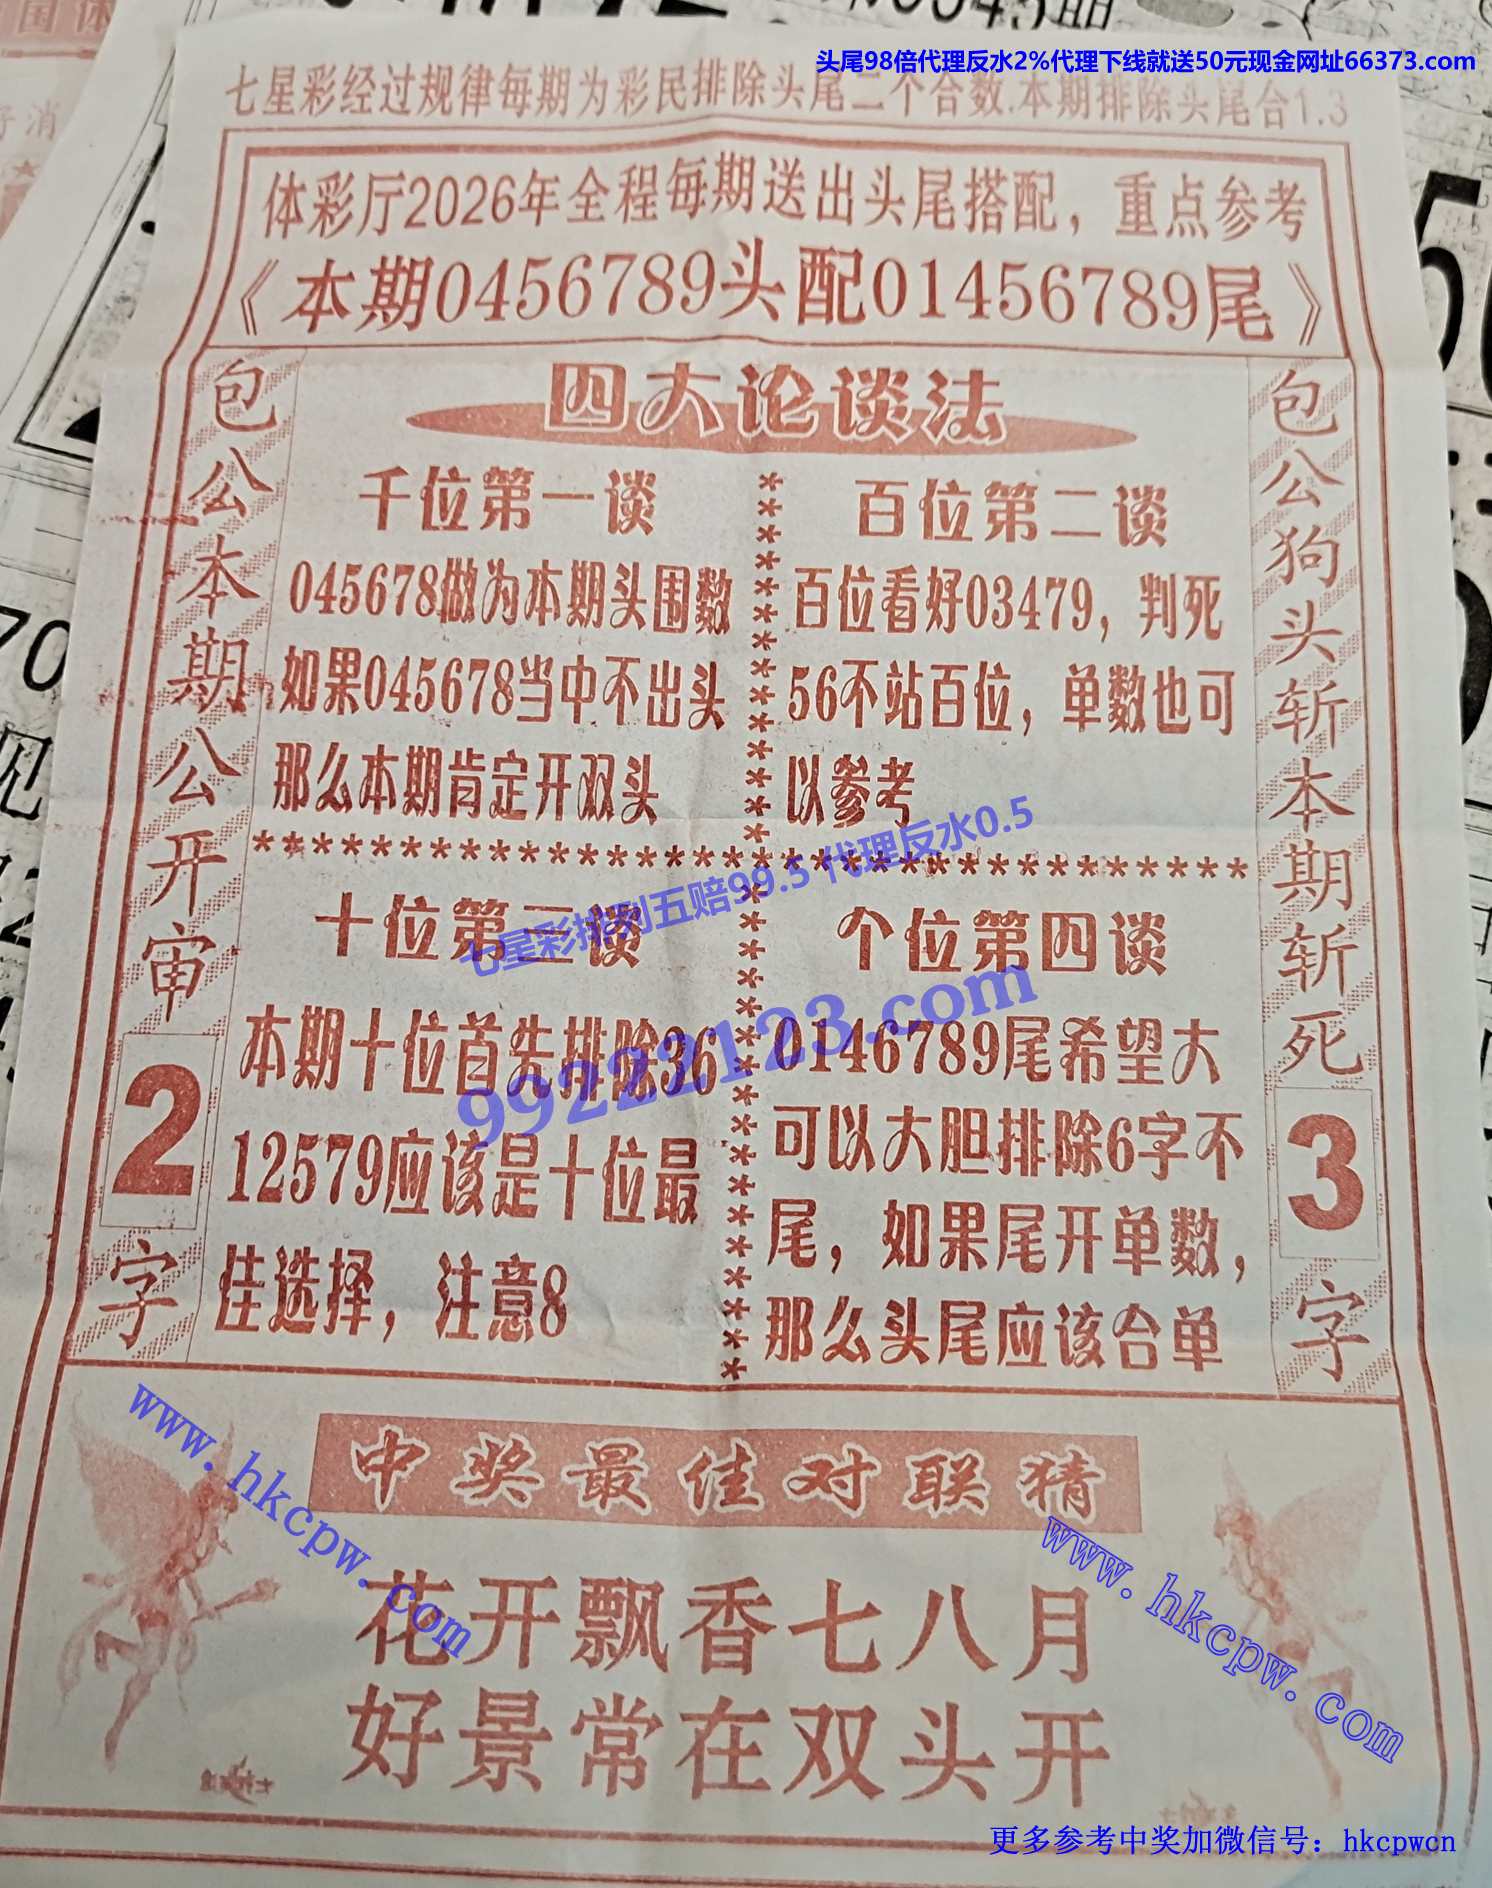 头尾98倍代理反水2%代理下线就送50元现金网址66373.com
七星彩经过规律每期为彩民排除头尾二个合数.本期排除头尾合1.3
体彩厅2026年全程每期送出头尾搭配，重点参考
《本期0456789头配01456789尾》
包公本期公开审2字
四大论谈法
千位第一谈
045678做为本期头围数
如果045678当中不出头
那么本期肯定开双头
百位第二谈
百位看好03479，判死
56不站百位，单数也可
以参考
七星彩排列五赔99.5 代理反水0.5
99222123.com
十位第三谈
本期十位首先排除36
12579应该是十位最
佳选择，注意8
个位第四谈
0146789尾希望大
可以大胆排除6字不
尾，如果尾开单数，
那么头尾应该合单
包公狗头斩本期斩死3字
中奖最佳对联猜
www.hkcpw.com
www.hkcpw.com
花开飘香七八月
好景常在双头开
更多参考中奖加微信号：hkcpwcn